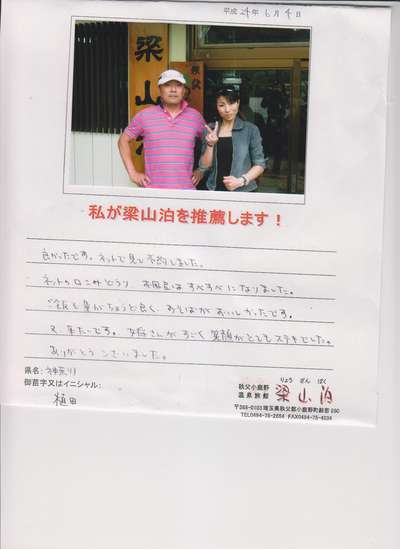 平成24年6月4日
梁山泊
秩父
私が梁山泊を推薦します！
良かったです。ネットで見て予約しました。
ネットの口コミどうり、お風呂はすべすべになりました。
ご飯も量がちょうど良く、おいしかったです。
又、来たいです。女将さんがすごく笑顔がとてもステキでした。
ありがとうございました。
県名：神奈川
御苗字又はイニシャル：
植田
秩父小鹿野
温泉旅館
りょう ざん ぱく
梁山泊
埼玉県秩父郡小鹿野町